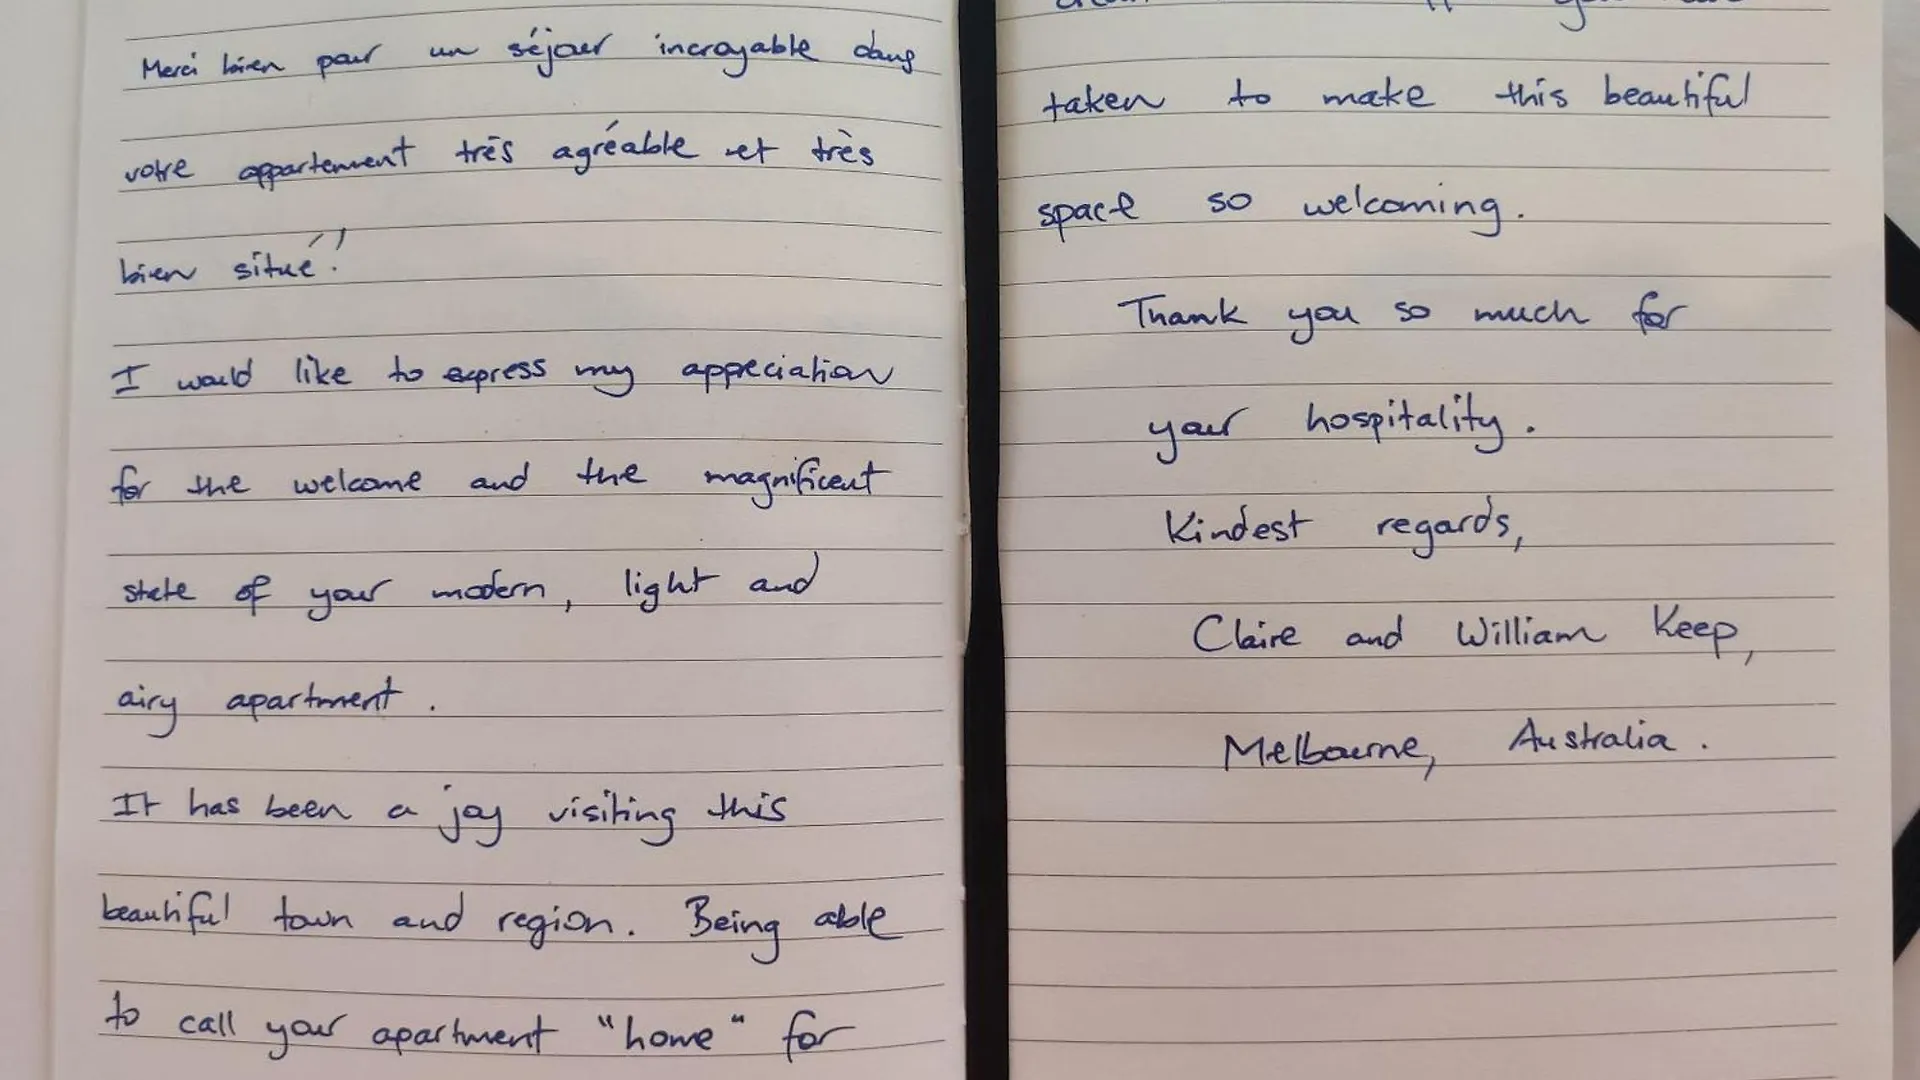 Merci bien pour un séjour incroyable dans
votre appartement très agréable et très
bien situé!
I would like to express my appreciation
for the welcome and the magnificent
state of your modern, light and
airy apartment.
It has been a joy visiting this
beautiful town and region. Being able
to call your apartment "home" for
taken to make this beautiful
space so welcoming.
Thank you so much for
your hospitality.
Kindest regards,
Claire and William Keep,
Melbourne, Australia.